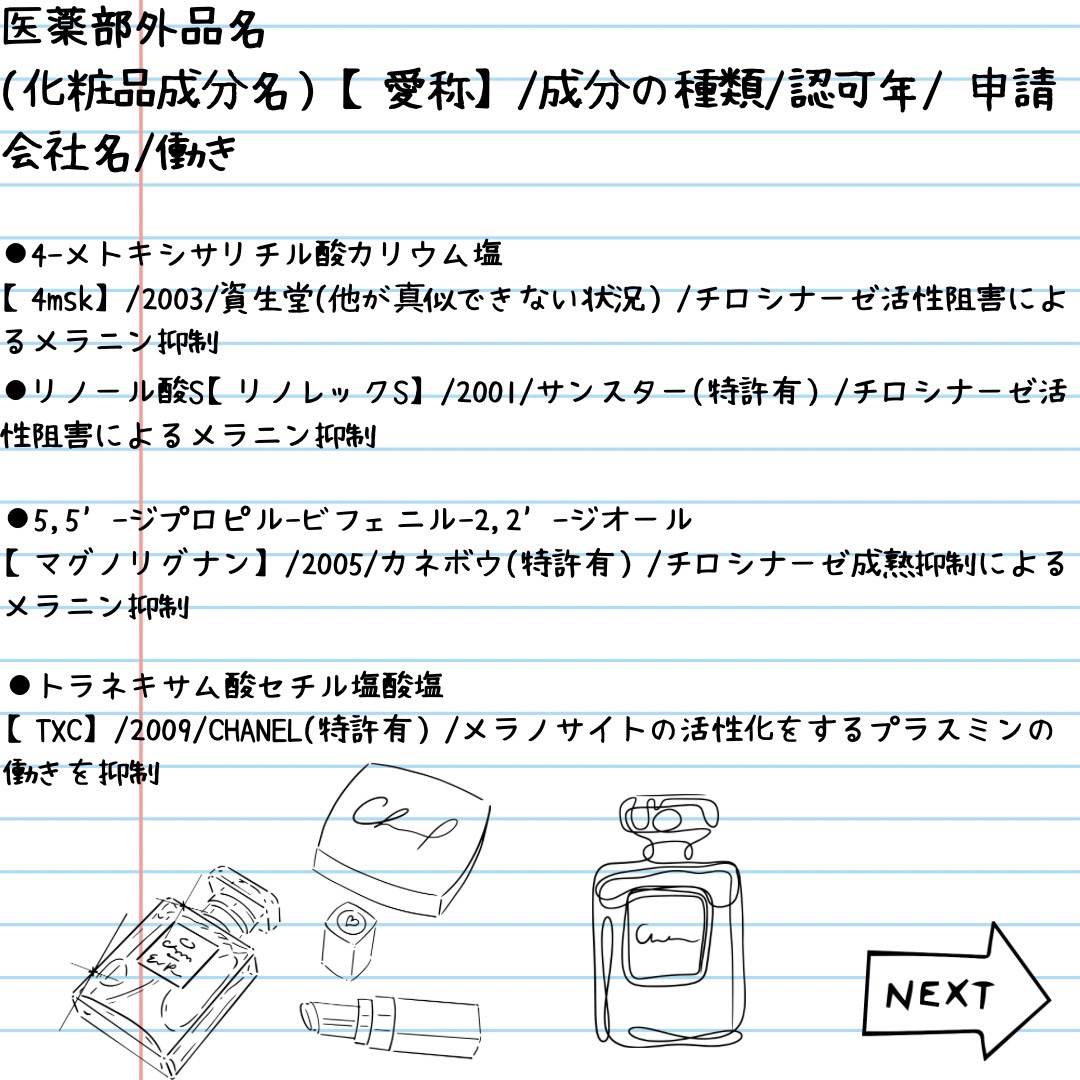 医薬部外品名
(化粧品成分名)【 愛称】/成分の種類/認可年/ 申請
会社名/働き
●4-メトキシサリチル酸カリウム塩
【 4msk】/2003/資生堂(他が真似できない状況) /チロシナーゼ活性阻害によ
るメラニン抑制
●リノール酸S【 リノレックS】/2001/サンスター(特許有) /チロシナーゼ活
性阻害によるメラニン抑制
●5,5’-ジプロピル-ビフェニル-2,2’-ジオール
【 マグノリグナン】/2005/カネボウ(特許有) /チロシナーゼ成熟抑制による
メラニン抑制
●トラネキサム酸セチル塩酸塩
【 TXC】/2009/CHANEL(特許有) /メラノサイトの活性化をするプラスミンの
働きを抑制
NEXT